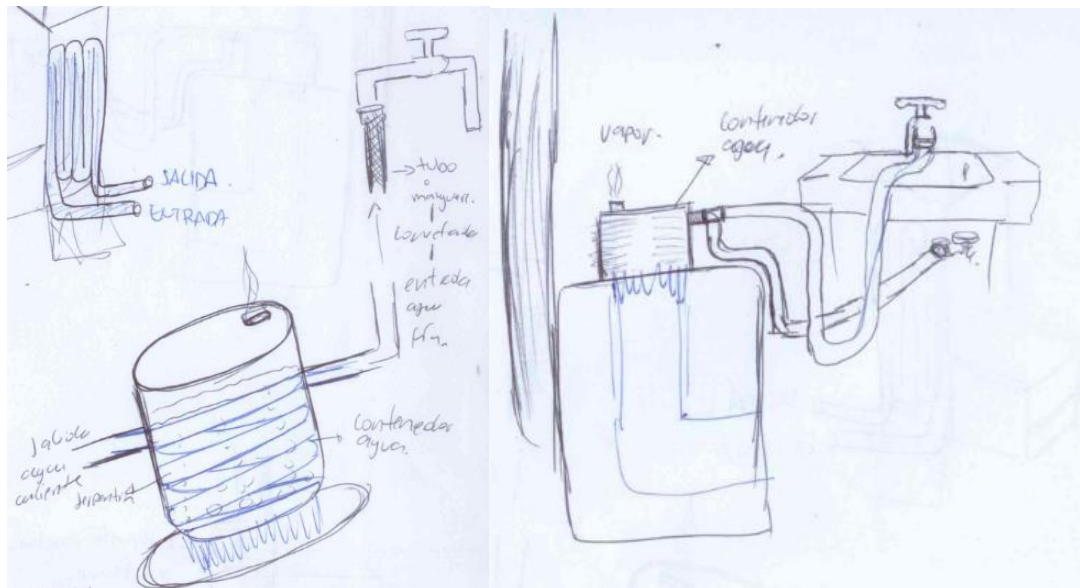 SALIDA.
ENTRADA
tubo
o
manguera.
conectada
entrada
agua
fría.
Salida
agua
caliente
serpentín
contenedor
agua.
vapor.
contenedor
agua.